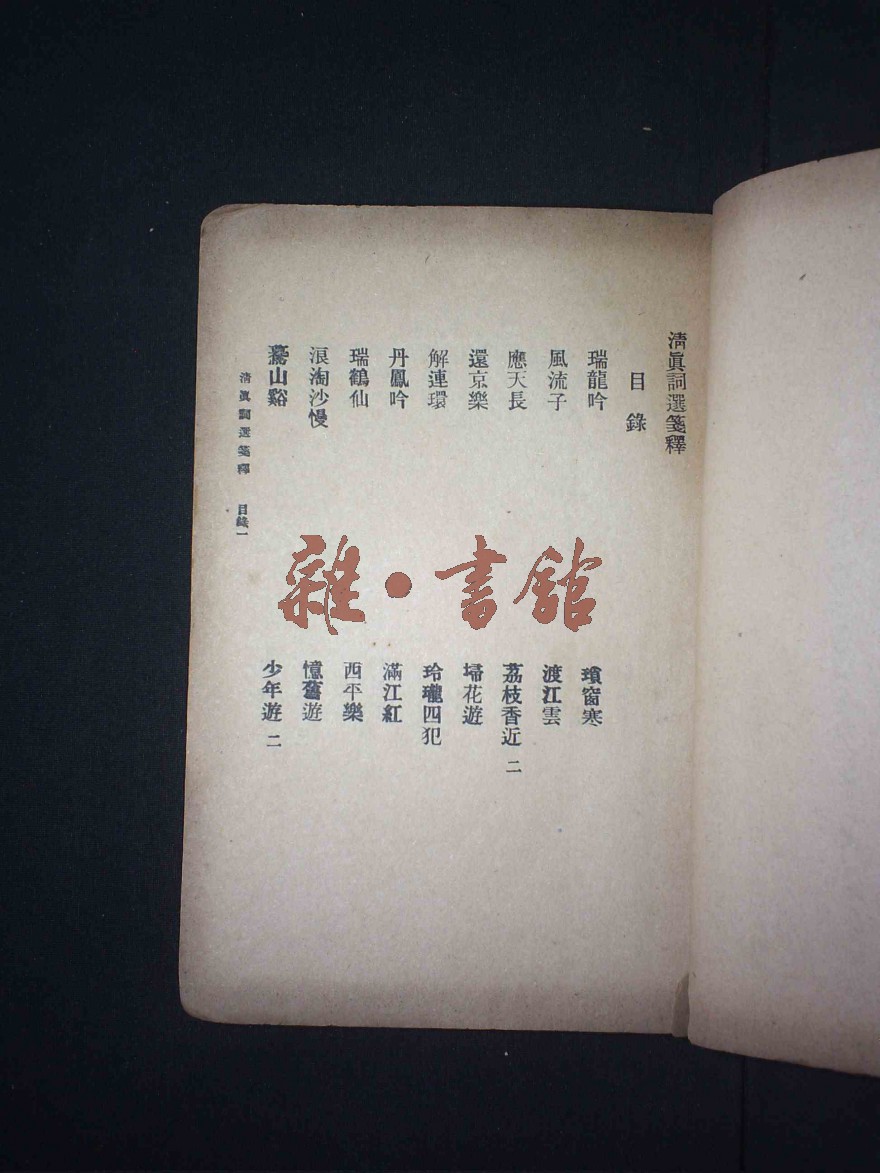 清眞詞選箋釋
目錄
瑞龍吟
瑣窗寒
風流子
渡江雲
應天長
荔枝香近 二
還京樂
埽花遊
解連環
玲瓏四犯
丹鳳吟
滿江紅
瑞鶴仙
西平樂
浪淘沙慢
憶舊遊
驀山谿
少年遊 二
清眞詞選箋釋 目錄一
雜·書館